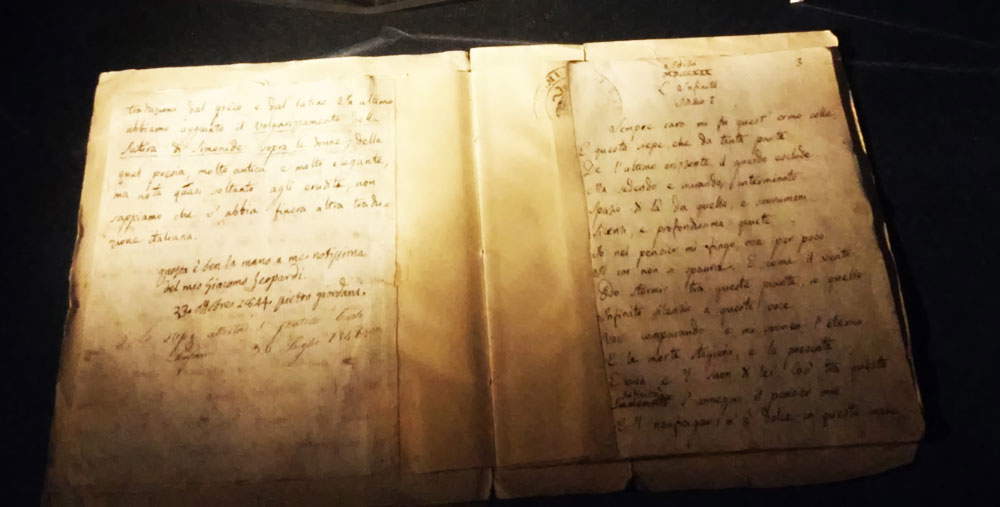 traduzioni dal greco e dal latino. In ultimo
abbiamo aggiunto il volgarizzamento della
Satira di Simonide sopra le donne, della
qual poesia, molto antica e molto elegante,
ma nota quasi soltanto agli eruditi, non
sappiamo che v'abbia finora altra tradu-
zione italiana.
questa è ben la mano a me notissima
del mio Giacomo Leopardi.
1844. pietro giordani.
3
L'Infinito
Idillio I
Sempre caro mi fu quest'ermo colle,
E questa siepe, che da tanta parte
De l'ultimo orizzonte il guardo esclude.
Ma sedendo e mirando, interminato
Spazio di là da quella, e sovrumani
Silenzi, e profondissima quiete
Io nel pensier mi fingo, ove per poco
Il cor non si spaura. E come il vento
Odo stormir tra queste piante, io quello
Infinito silenzio a questa voce
Vo comparando: e mi sovvien l'eterno,
E le morte stagioni, e la presente
E viva, e 'l suon di lei. Così tra questa
s'annega il pensier mio:
E 'l naufragar m'è dolce in questo mare.